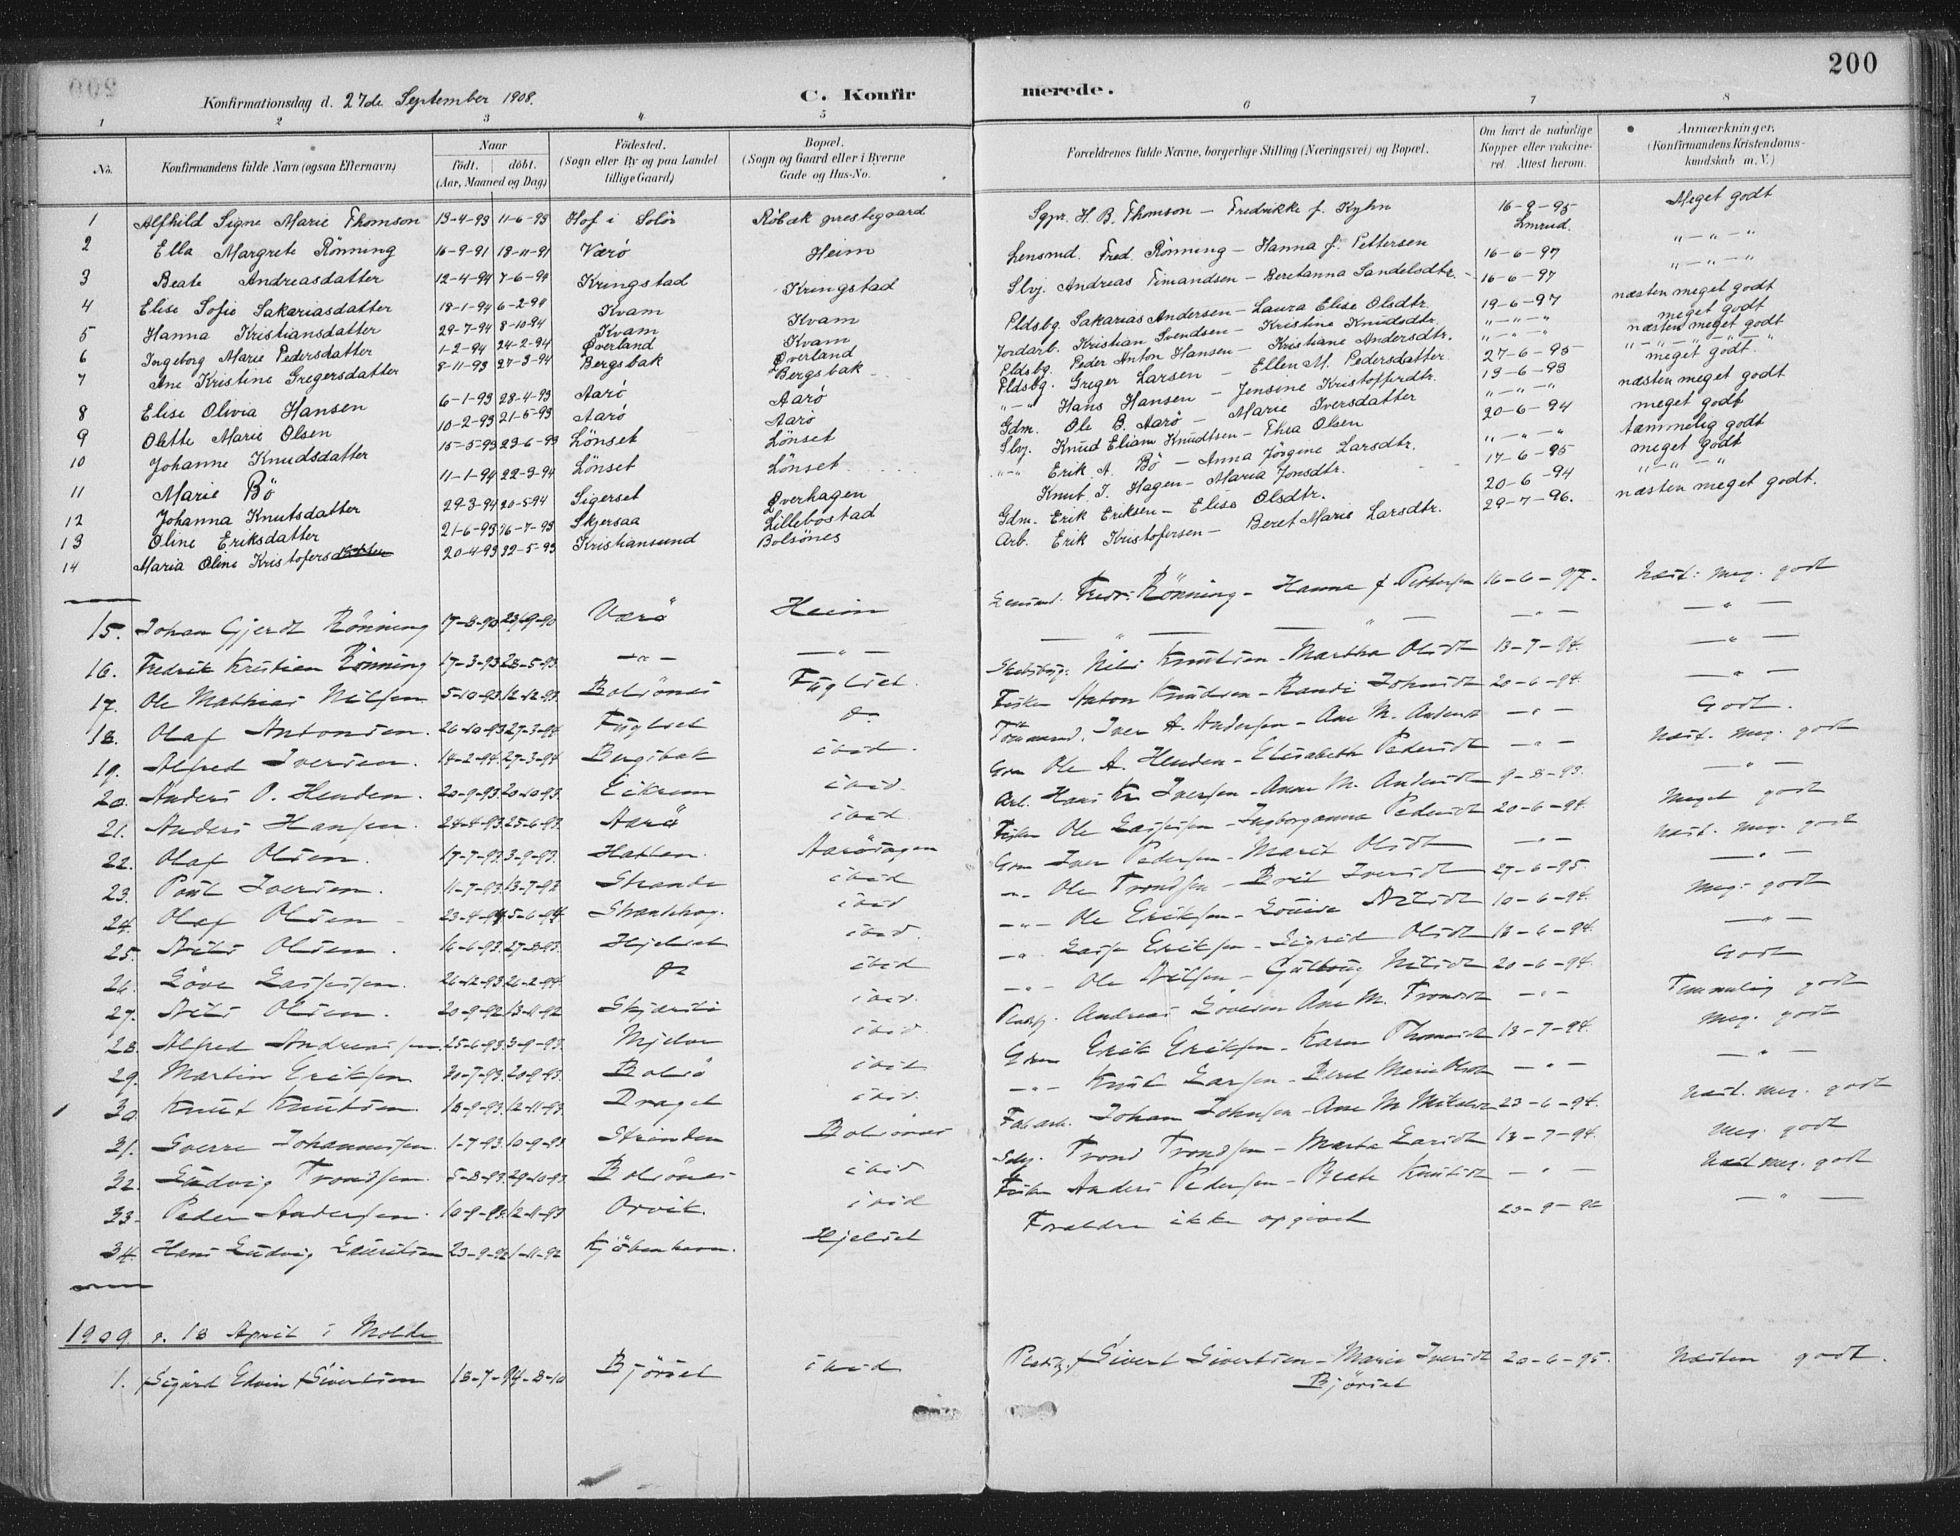 200
Konfirmationsdag d. 27de September 1908.
C. Konfirmerede.
1 2 3 4 5 6 7 8
No. Konfirmandens fulde Navn (ogsaa Efternavn) Naar födt. döbt. (Aar, Maaned og Dag) Födested. (Sogn eller By og paa Landet tillige Gaard) Bopæl. (Sogn og Gaard eller i Byerne Gade og Hus-No. Forældrenes fulde Navne, borgerlige Stilling (Næringsvei) og Bopæl. Om havt de naturlige Kopper eller vakcineret. Attest herom. Anmærkninger. (Konfirmandens Kristendomskundskab m. V.)
1 Alfhild Signe Marie Thomson 13-4-93 11-6-93 Hof i Solör Röbæk prestegaard Sgpr. H. B. Thomson - Fredrikke f. Kyhn 16-9-95 Meget godt
2 Ella Margrete Rönning 16-9-91 18-11-91 Værö Heim Lensmd. Fred. Rönning - Hanna f. Pettersen 16-6-97 " - " - "
3 Beate Andreasdatter 12-4-94 7-6-94 Kringstad Kringstad Slvj. Andreas Timandsen - Beretanna Sandelsdtr. 16-6-97 " - " - "
4 Elise Sofie Sakariasdatter 18-1-94 6-2-94 Kvam Kvam Pldsbg. Sakarias Andersen - Laura Elise Olsdtr. 19-6-97 næsten meget godt
5 Hanna Kristiansdatter 29-7-94 8-10-94 Kvam Kvam Jordarb. Kristian Svendsen - Kristine Knudsdtr. " - " - " meget godt
6 Ingeborg Marie Pedersdatter 1-2-94 24-2-94 Øverland Øverland Pldsbg. Peder Anton Hansen - Kristiane Andersdtr. " - " - " næsten meget godt
7 Ane Kristine Gregersdatter 8-11-93 27-3-94 Bergsbak Bergsbak Pldsbg. Greger Larsen - Ellen M. Pedersdatter 27-6-95 " - " - " - "
8 Elise Olivia Hansen 6-1-93 28-4-93 Aarö Aarö " - " Hans Hansen - Jensine Kristofferdtr. 13-6-93 meget godt.
9 Olette Marie Olsen 10-2-93 21-5-93 Aarö Aarö Gdm. Ole B. Aarö - Marie Iversdatter " - " - " næsten meget godt
10 Johanne Knudsdatter 15-5-93 23-6-93 Lönset Lönset Slvj. Knud Eliam Knudtsen - Thea Olsen 20-6-94 meget godt
11 Marie Bö 11-1-94 22-3-94 Lönset Lönset " - " Erik A. Bö - Anna Jörgine Larsdtr. " - " - " tæmmelig godt
12 Johanna Knutsdatter 29-3-94 20-5-94 Sigerset Øverhagen Knut J. Hagen - Maria Jonsdtr. 17-6-95 meget godt
13 Oline Eriksdatter 21-6-93 16-7-93 Skjersaa Lillebostad Gdm. Erik Eriksen - Elise Olsdtr. 20-6-94 " - " - "
14 Maria Oline Kristofers 20-4-93 22-5-93 Kristiansund Bolsönes Arb. Erik Kristofersen - Beret Marie Larsdtr. 29-7-96. næsten meget godt.
15. Johan Gjerdt Rönning 17-8-90 23-9-90 Værö Heim Lensmd. Fredr. Rönning - Hanna f. Pettersen 16-6-97. Næst. meg. godt
16. Fredrik Kristian Rönning 17-3-93 28-5-93 - " - - " - - " - " - - " - - " -
17. Ole Mathias Nilsen 5-10-93 12-12-93 Bolsönes Fuglset. Nils Knutsen - Martha Olsdt 13-7-94. - " -
18. Olaf Antonsen. 26-10-93 27-3-94 Fuglset do Fisker Anton Knudsen - Randi Johnsdt 20-6-94. - " -
19. Alfred Iversen. 14-2-94 27-3-94 Bergsbak ibid. Iver A. Andersen - Ane M. Andersdt - " - Godt.
20. Anders O. Henden. 20-9-93 20-10-93. Eikrem ibid. Grm Ole A. Henden - Elisabeth Pedersdt - " - Næst. meg. godt
21. Anders Hansen. 24-4-93 25-6-93. Aarö ibid Arb. Hans Kr. Iversen - Anne M. Andersdt 9-8-93. - " -
22. Olaf Olsen. 17-7-93. 3-9-93. Hatten. Aarödagen Fisker Ole Lassesen - Ingeborganna Pedersdt 20-6-94. Meget godt
23. Paul Iversen. 11-7-93. 13-7-93 Strande ibid Grm Iver Pedersen - Marit Olsdt - " - Næst. meg. godt
24. Olaf Olsen 23-4-94 5-6-94. ibid - " - Ole Trondsen - Brit Iversdt 27-6-95 - " -
25. Nils Olsen. 16-6-93. 27-8-93. Hjelset ibid. - " - Ole Eriksen - Louise Nilsdt 10-6-94. Meg. godt
26. Löve Lassesen. 26-12-93 26-2-94. do ibid - " - Lasse Eriksen - Sigrid Olsdt 13-6-94. - " -
27. Nils Olsen. 20-9-92 13-11-92 ibid. - " - Ole Nilsen - Gulborg Nilsdt 20-6-94. Godt
28. Alfred Andreassen. 25-6-93. 3-9-93. Mjelve ibid. Andreas Lövesen Ane M. Trondsdt - " - Temmelig godt
29. Martin Eriksen 30-7-93. 20-9-93. Bolsö ibid Grm Erik Eriksen - Karen Thomasdt 13-7-94. Meg. godt
30. Knut Knutsen. 18-9-93. 12-11-93. Draget ibid. - " - Knut Larsen - Beret Marie Olsdt - " - - " -
31. Sverre Johannessen. 1-7-93. 10-9-93 Strinden Bolsönes Johan Johnsen - Ane M. Mikalsdt 23-6-94. Næst. meg. godt
32. Ludvig Trondsen. 5-8-93. 29-10-93. Bolsönes ibid Trond Trondsen - Marta Larsdt 13-7-94. Meg. godt
33. Peder Andersen. 10-9-93. 12-11-93 Orvik. ibid Fisker Anders Pedersen - Beate Knutsdt - " - Næst meg. godt
34. Hans Ludvig Lauritsen 23-9-92 1-11-92 Kjöbenhavn. Hjelset Forældre ikke opgivet 23-9-92 - " -
1909. d. 18 April i Molde
1. Sigurd Edvin Sivertsen 13-7-94-8-10 Björset ibid Sivert Sivertsen - Marie Iversdt 20-6-95. Næsten godt.
Björset